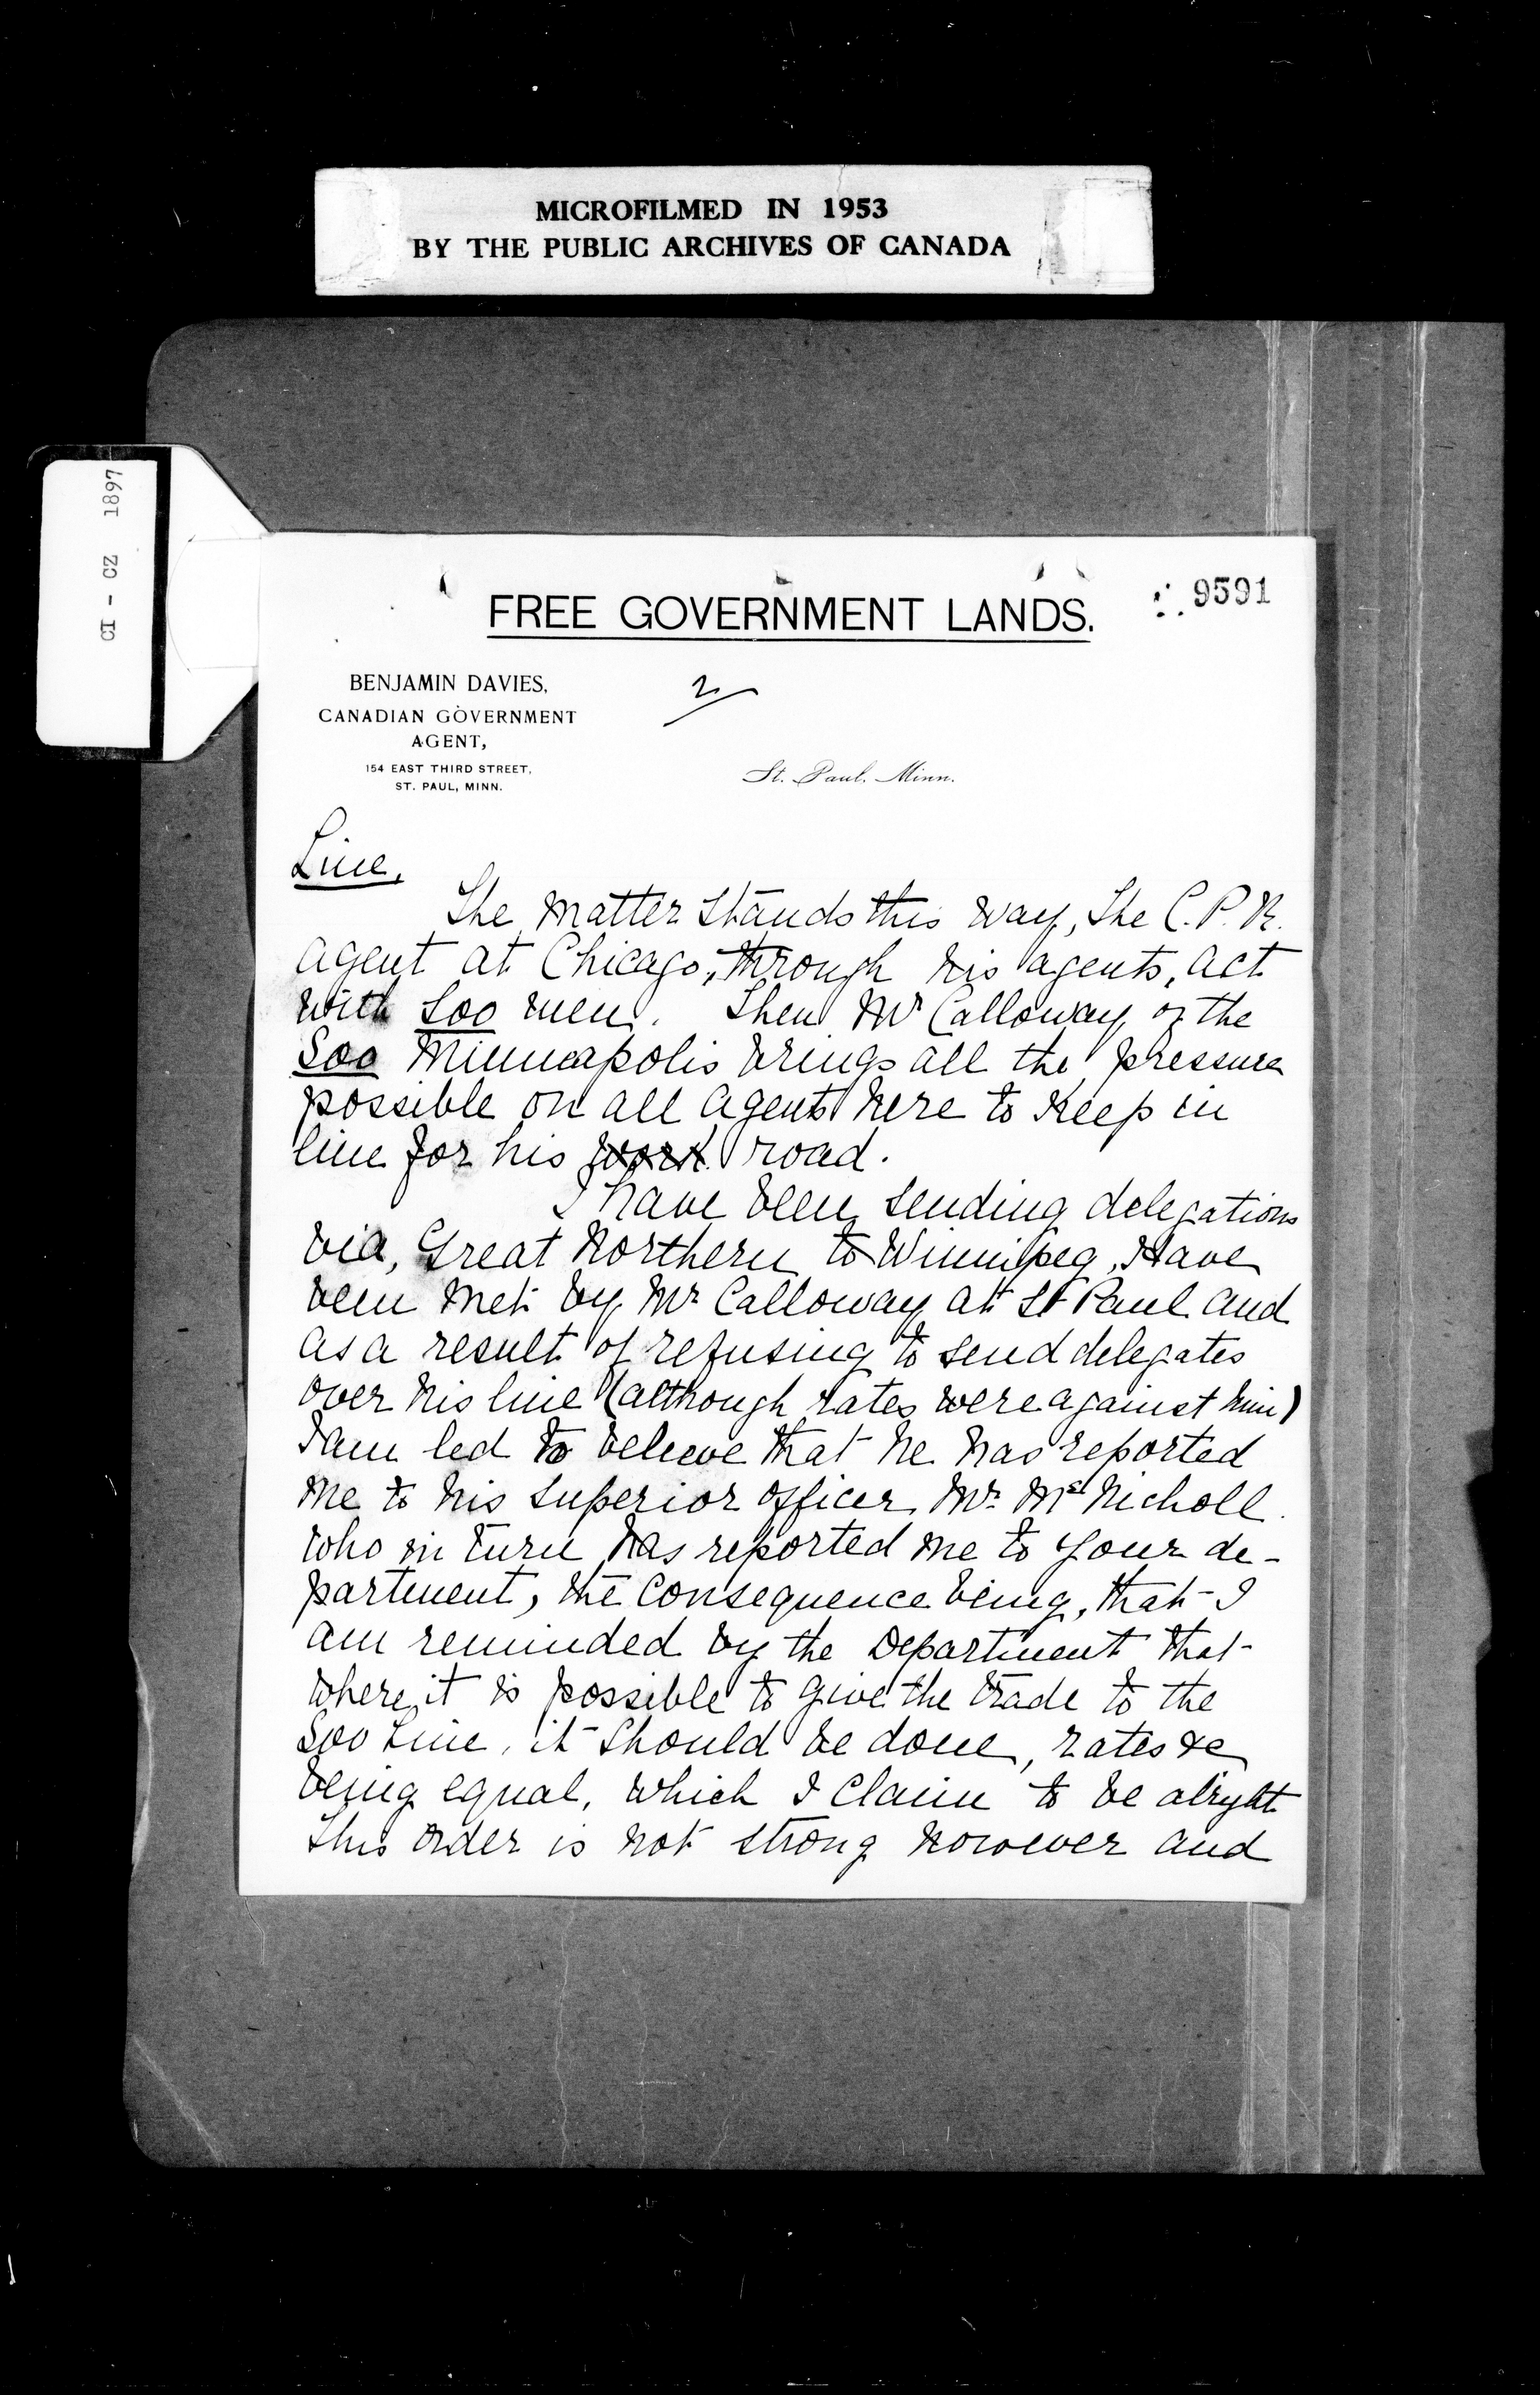 MICROFILMED IN 1953
BY THE PUBLIC ARCHIVES OF CANADA
CI - CZ 1897
FREE GOVERNMENT LANDS.
9591
BENJAMIN DAVIES,
CANADIAN GOVERNMENT
AGENT,
154 EAST THIRD STREET,
ST. PAUL, MINN.
2
St. Paul, Minn.
Line.
The matter stands this way, The C.P.R.
agent at Chicago, through his agents, act
with Soo men. Then Mr Calloway of the
Soo Minneapolis brings all the pressure
possible on all agents here to keep in
line for his work road.
I have been sending delegations
via, Great Northern to Winnipeg, Have
been met by Mr Calloway at St Paul and
as a result of refusing to send delegates
over his line (although rates were against him)
I am led to believe that he has reported
me to his superior officer Mr. McNicholl.
who in turn has reported me to your de-
partment, the consequence being, that I
am reminded by the Department that
where it is possible to give the trade to the
Soo Line, it should be done, rates &c
being equal, which I claim to be alright
This order is not strong however and